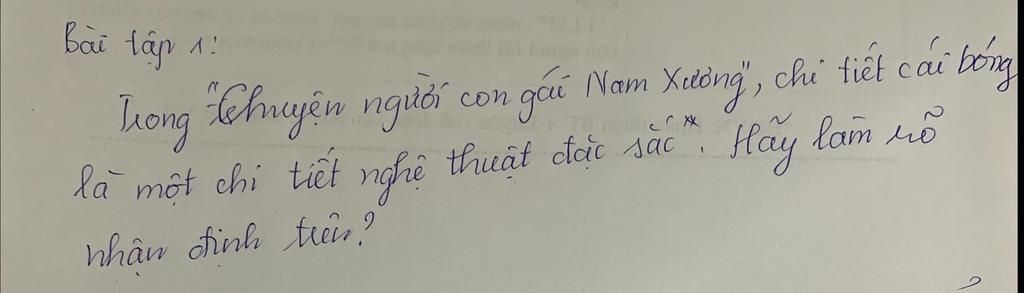 Bài tập 1:
Trong "Chuyện người con gái Nam Xương", chi tiết cái bóng
là một chi tiết nghệ thuật đặc sắc". Hãy làm rõ
nhận định trên?